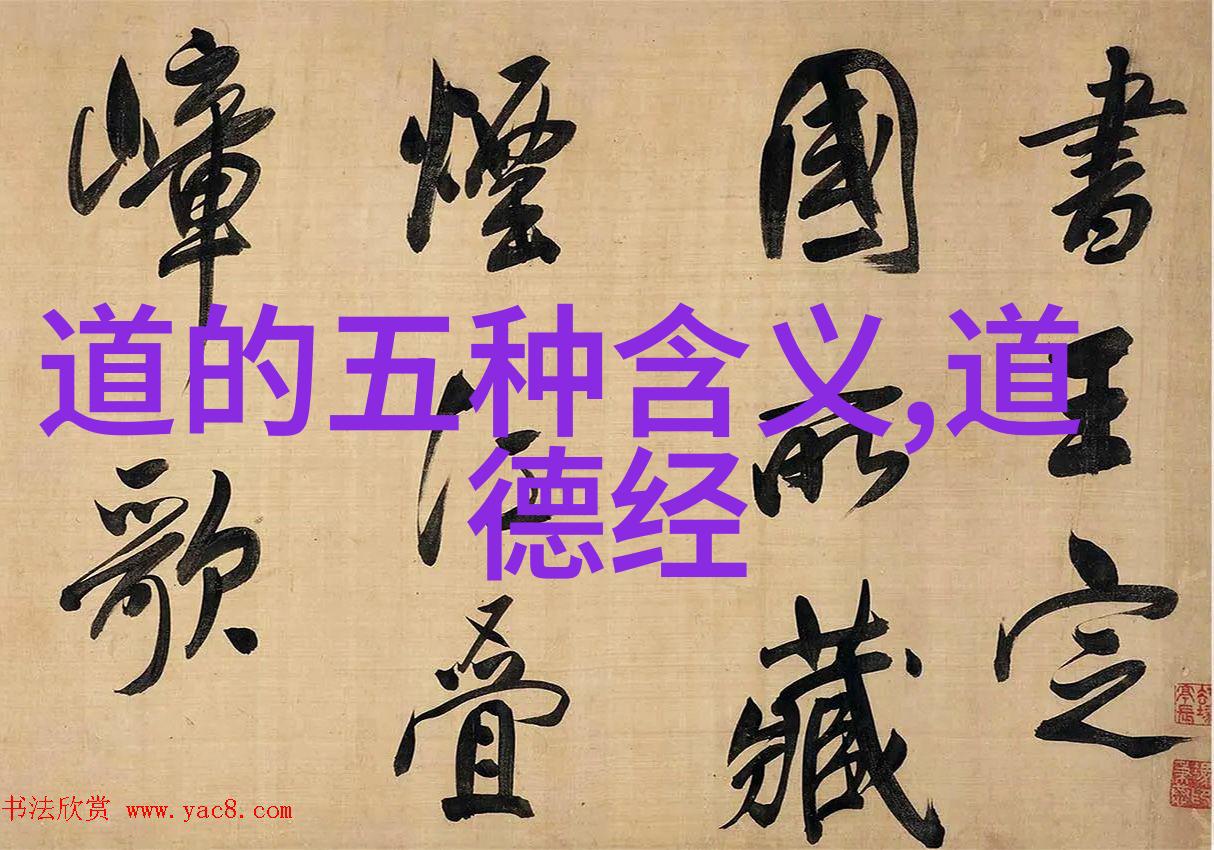 書王定
國所藏
煙江疊
嶂歌
道的五种含义,道
德经
书法欣赏 www.yac8.com